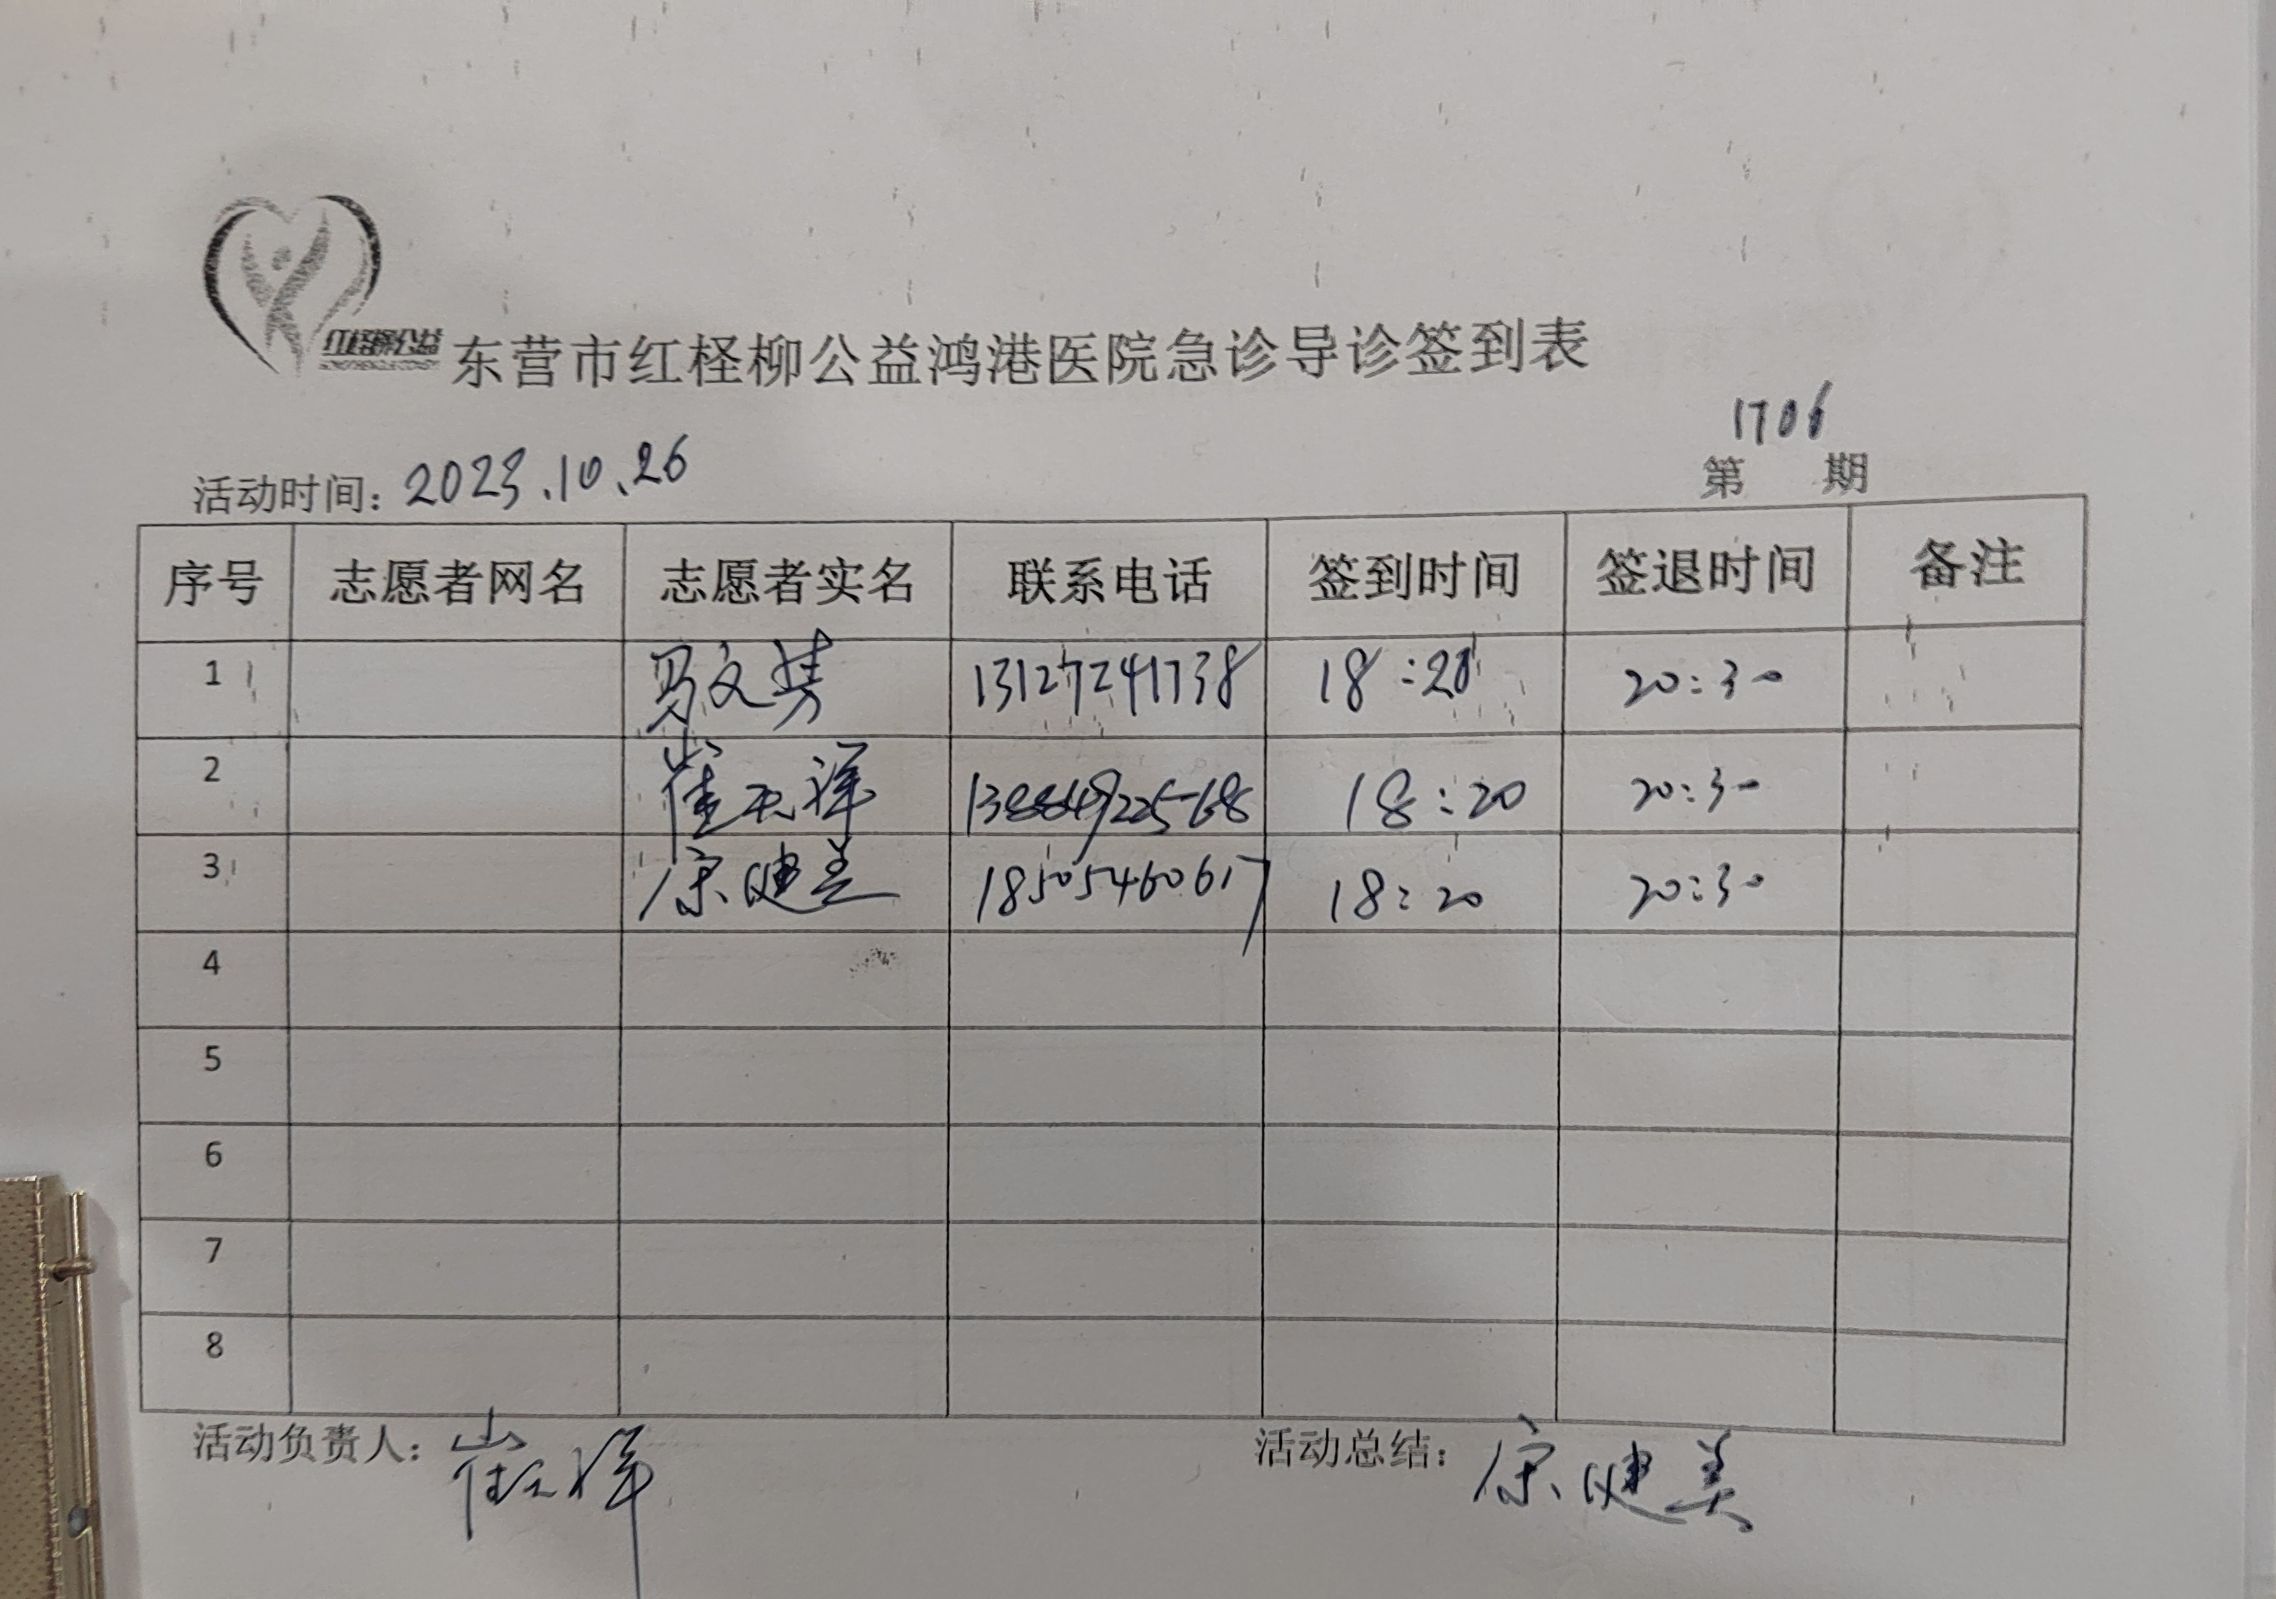 红柽柳公益
东营市红柽柳公益鸿港医院急诊导诊签到表
1706
活动时间：2023.10.26 第 期
序号 志愿者网名 志愿者实名 联系电话 签到时间 签退时间 备注
1 马文 13127241738 18:20 20:30
2 崔玉祥 18:20 20:30
3 康健美 18505460617 18:20 20:30
4
5
6
7
8
活动负责人：崔玉祥 活动总结：康健美